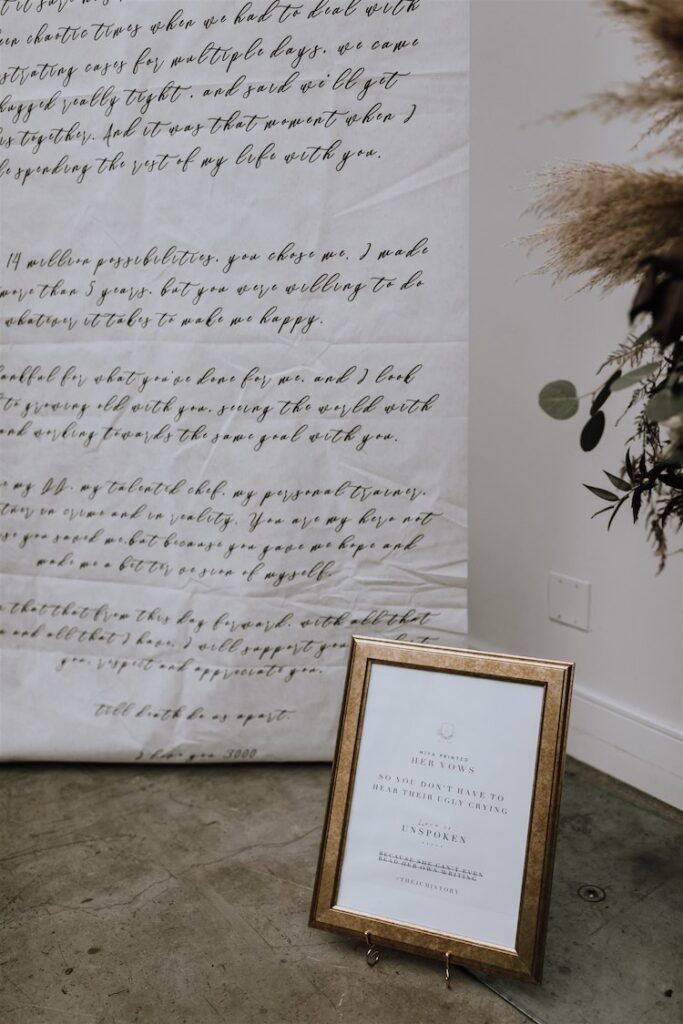 it sure
been chaotic times when we had to deal with
strating cases for multiple days. we came
hugged really tight. and said we'll get
is together. And it was that moment when I
spending the rest of my life with you.
14 million possibilities. you chose me. I made
more than 5 years. but you were willing to do
whatever it takes to make me happy.
ankful for what you've done for me. and I look
to growing old with you. seeing the world with
and working towards the same goal with you.
my DD. my talented chef. my personal trainer.
tner in crime and in reality. You are my hero not
se you saved me.but because you gave me hope and
made me a better vesion of myself.
that that from this day forward. with all that
and all that I have. I will support you
you. respect and appreciate you.
till death do us apart.
I love you 3000
MIYA PRINTED
HER VOWS
SO YOU DON'T HAVE TO
HEAR THEIR UGLY CRYING
UNSPOKEN
BECAUSE SHE CAN'T EVEN
READ HER OWN WRITING
#THEICMISTORY